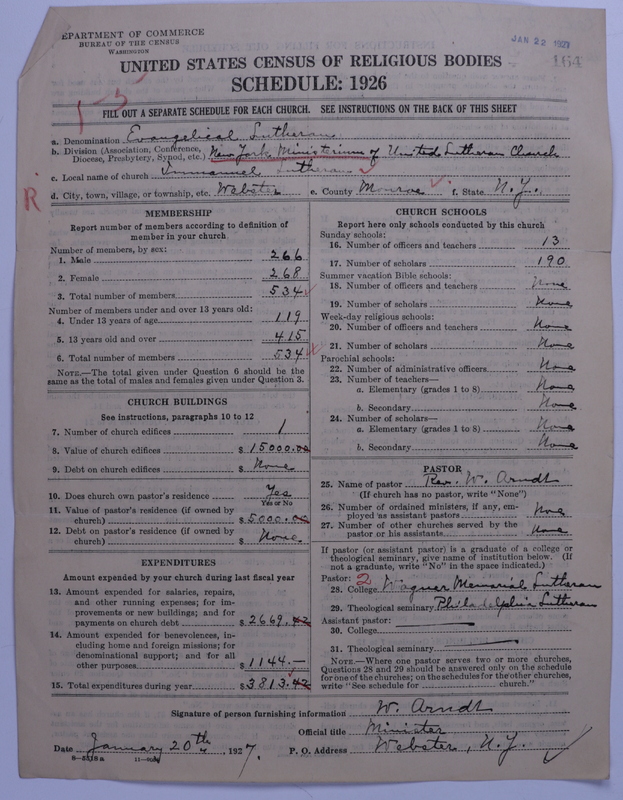 DEPARTMENT OF COMMERCE
BUREAU OF THE CENSUS
WASHINGTON
JAN 22 1927
164
UNITED STATES CENSUS OF RELIGIOUS BODIES
SCHEDULE: 1926
1-5
FILL OUT A SEPARATE SCHEDULE FOR EACH CHURCH. SEE INSTRUCTIONS ON THE BACK OF THIS SHEET
a. Denomination Evangelical Lutheran
b. Division (Association, Conference, Diocese, Presbytery, Synod, etc.) New York Ministerium of United Lutheran Church
c. Local name of church Immanuel Lutheran
R
d. City, town, village, or township, etc. Webster e. County Monroe f. State N.Y.
MEMBERSHIP
Report number of members according to definition of member in your church
Number of members, by sex:
1. Male 266
2. Female 268
3. Total number of members 534
Number of members under and over 13 years old:
4. Under 13 years of age 119
5. 13 years old and over 415
6. Total number of members 534
NOTE.—The total given under Question 6 should be
same as the total of males and females given under Question 3.
CHURCH BUILDINGS
See instructions, paragraphs 10 to 12
7. Number of church edifices 1
8. Value of church edifices $15000.00
9. Debt on church edifices $ None
10. Does church own pastor's residence Yes
Yes or No
11. Value of pastor's residence (if owned by
church) $5000.00
12. Debt on pastor's residence (if owned by
church) $ None.
EXPENDITURES
Amount expended by your church during last fiscal year
13. Amount expended for salaries, repairs,
and other running expenses; for im-
provements or new buildings; and for
payments on church debt $2669.42
14. Amount expended for benevolences, in-
cluding home and foreign missions; for
denominational support; and for all
other purposes $1144.—
15. Total expenditures during year $3813.42
CHURCH SCHOOLS
Report here only schools conducted by this church
Sunday schools:
16. Number of officers and teachers 13
17. Number of scholars 190
Summer vacation Bible schools:
18. Number of officers and teachers None
19. Number of scholars None
Week-day religious schools:
20. Number of officers and teachers None
21. Number of scholars None
Parochial schools:
22. Number of administrative officers None
23. Number of teachers—
a. Elementary (grades 1 to 8) None
b. Secondary None
24. Number of scholars—
a. Elementary (grades 1 to 8) None
b. Secondary None
PASTOR
25. Name of pastor Rev. W. Arndt
(If church has no pastor, write "None")
26. Number of ordained ministers, if any, em-
ployed as assistant pastors None
27. Number of other churches served by the
pastor or his assistants None
If pastor (or assistant pastor) is a graduate of a college or
theological seminary, give name of institution below. (If
not a graduate, write "No" in the space indicated.)
Pastor: 2
28. College Wagner Memorial Lutheran
29. Theological seminary Philadelphia Lutheran
Assistant pastor:
30. College
31. Theological seminary
NOTE.—Where one pastor serves two or more churches,
Questions 28 and 29 should be answered only on the schedule
for one of the churches; on the schedules for the other churches,
write "See schedule for church."
Signature of person furnishing information W. Arndt
Official title Minister
Date January 20th, 1927. P. O. Address Webster, N.Y.
8—5318a